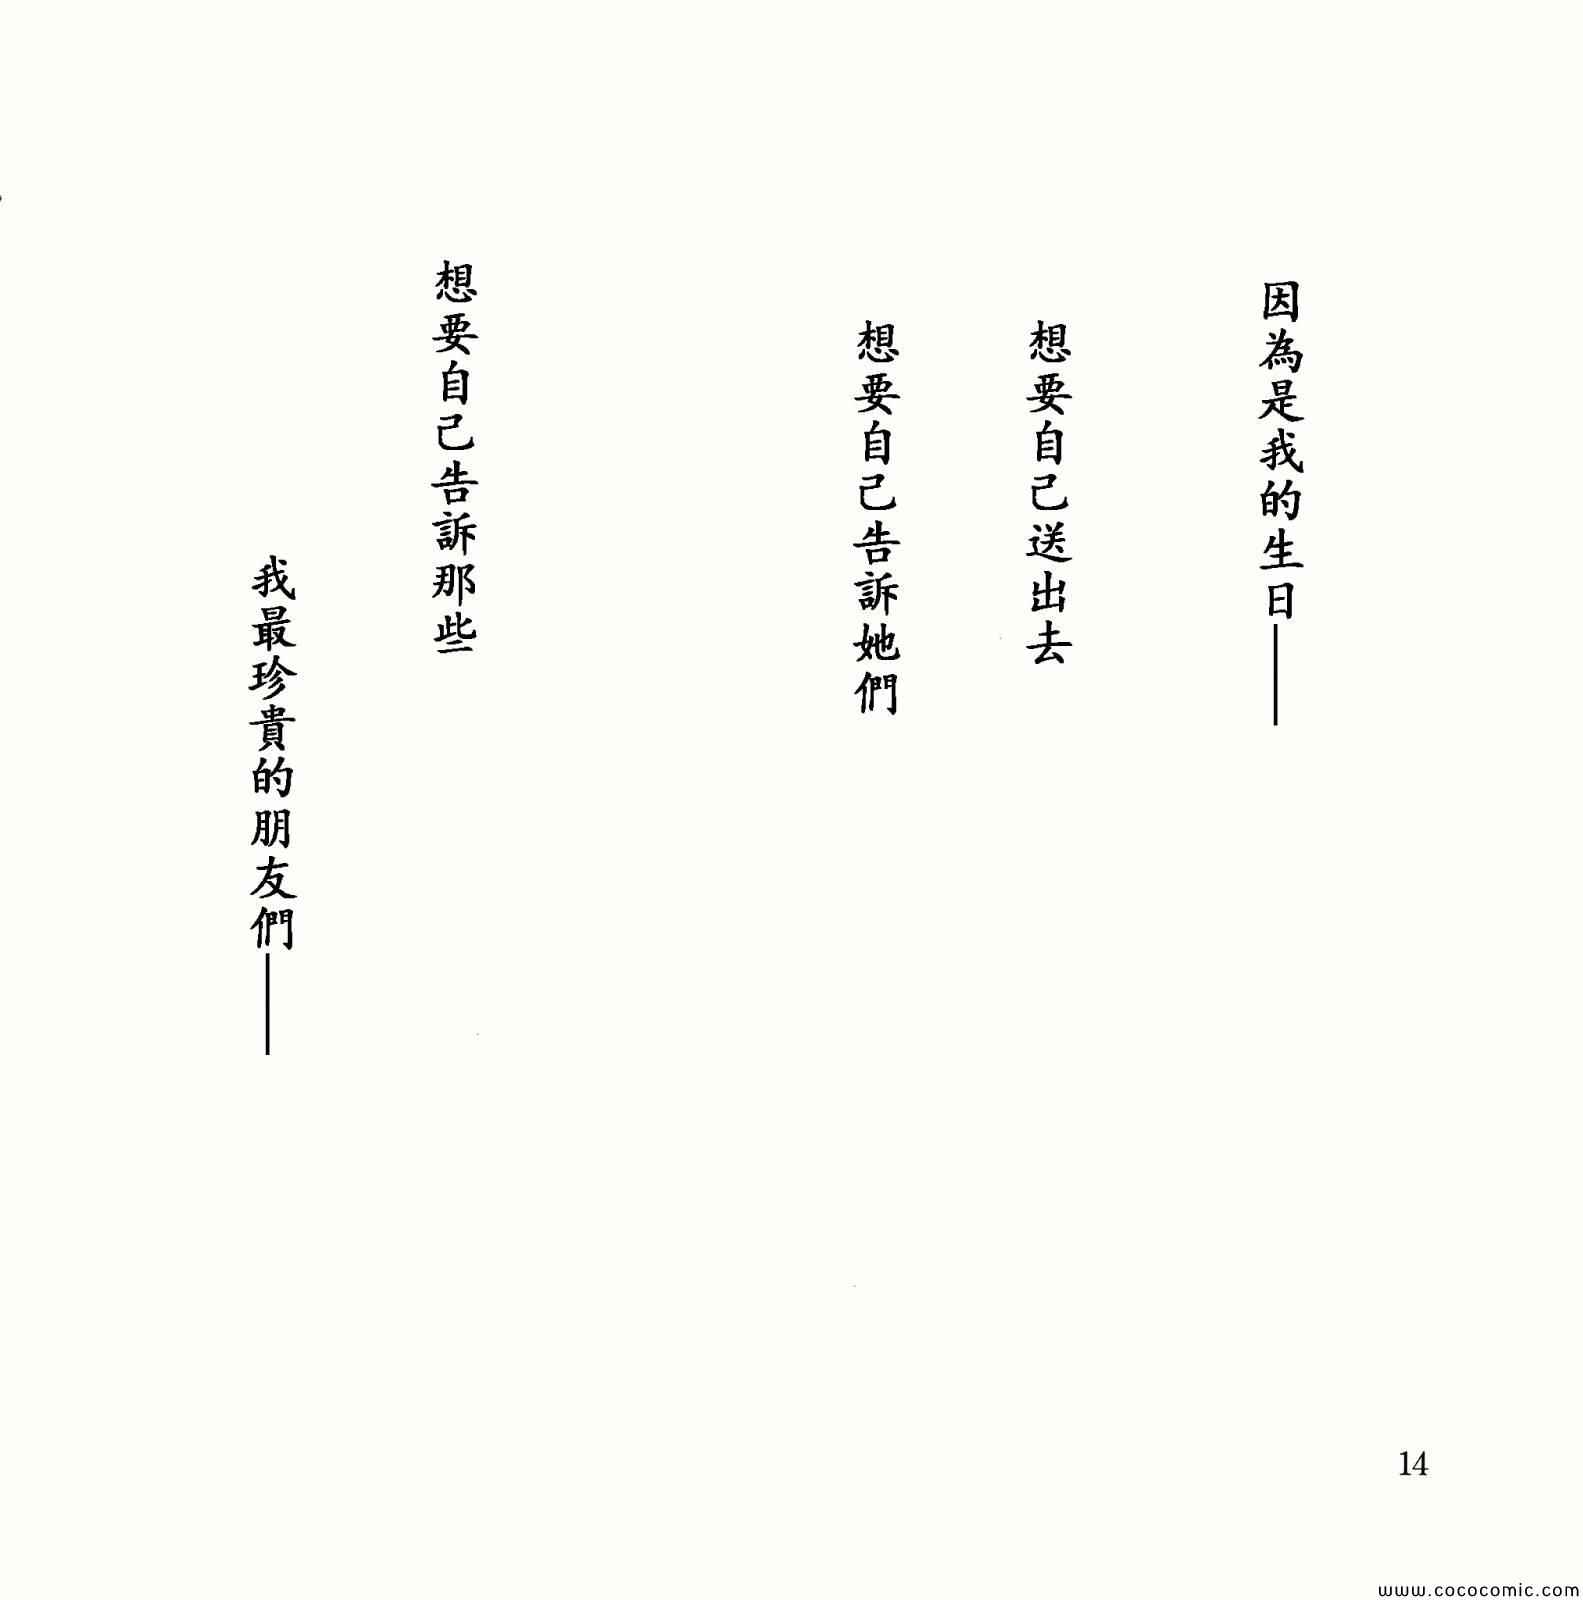 因為是我的生日——
想要自己送出去
想要自己告訴她們
想要自己告訴那些
我最珍貴的朋友們——
14
www.cococomic.com